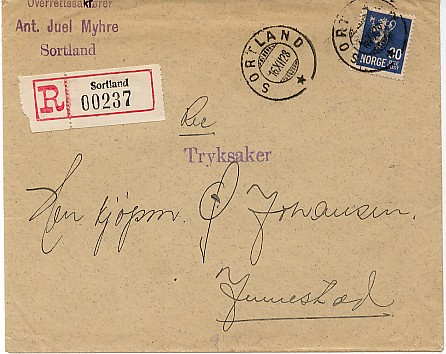 Overrettssakfører
Ant. Juel Myhre
Sortland
SORTLAND
16 XII 28
SORT
30
NORGE
R
Sortland
00237
Rec
Tryksaker
Herr kjøpm. O Johansen.
Jennestad